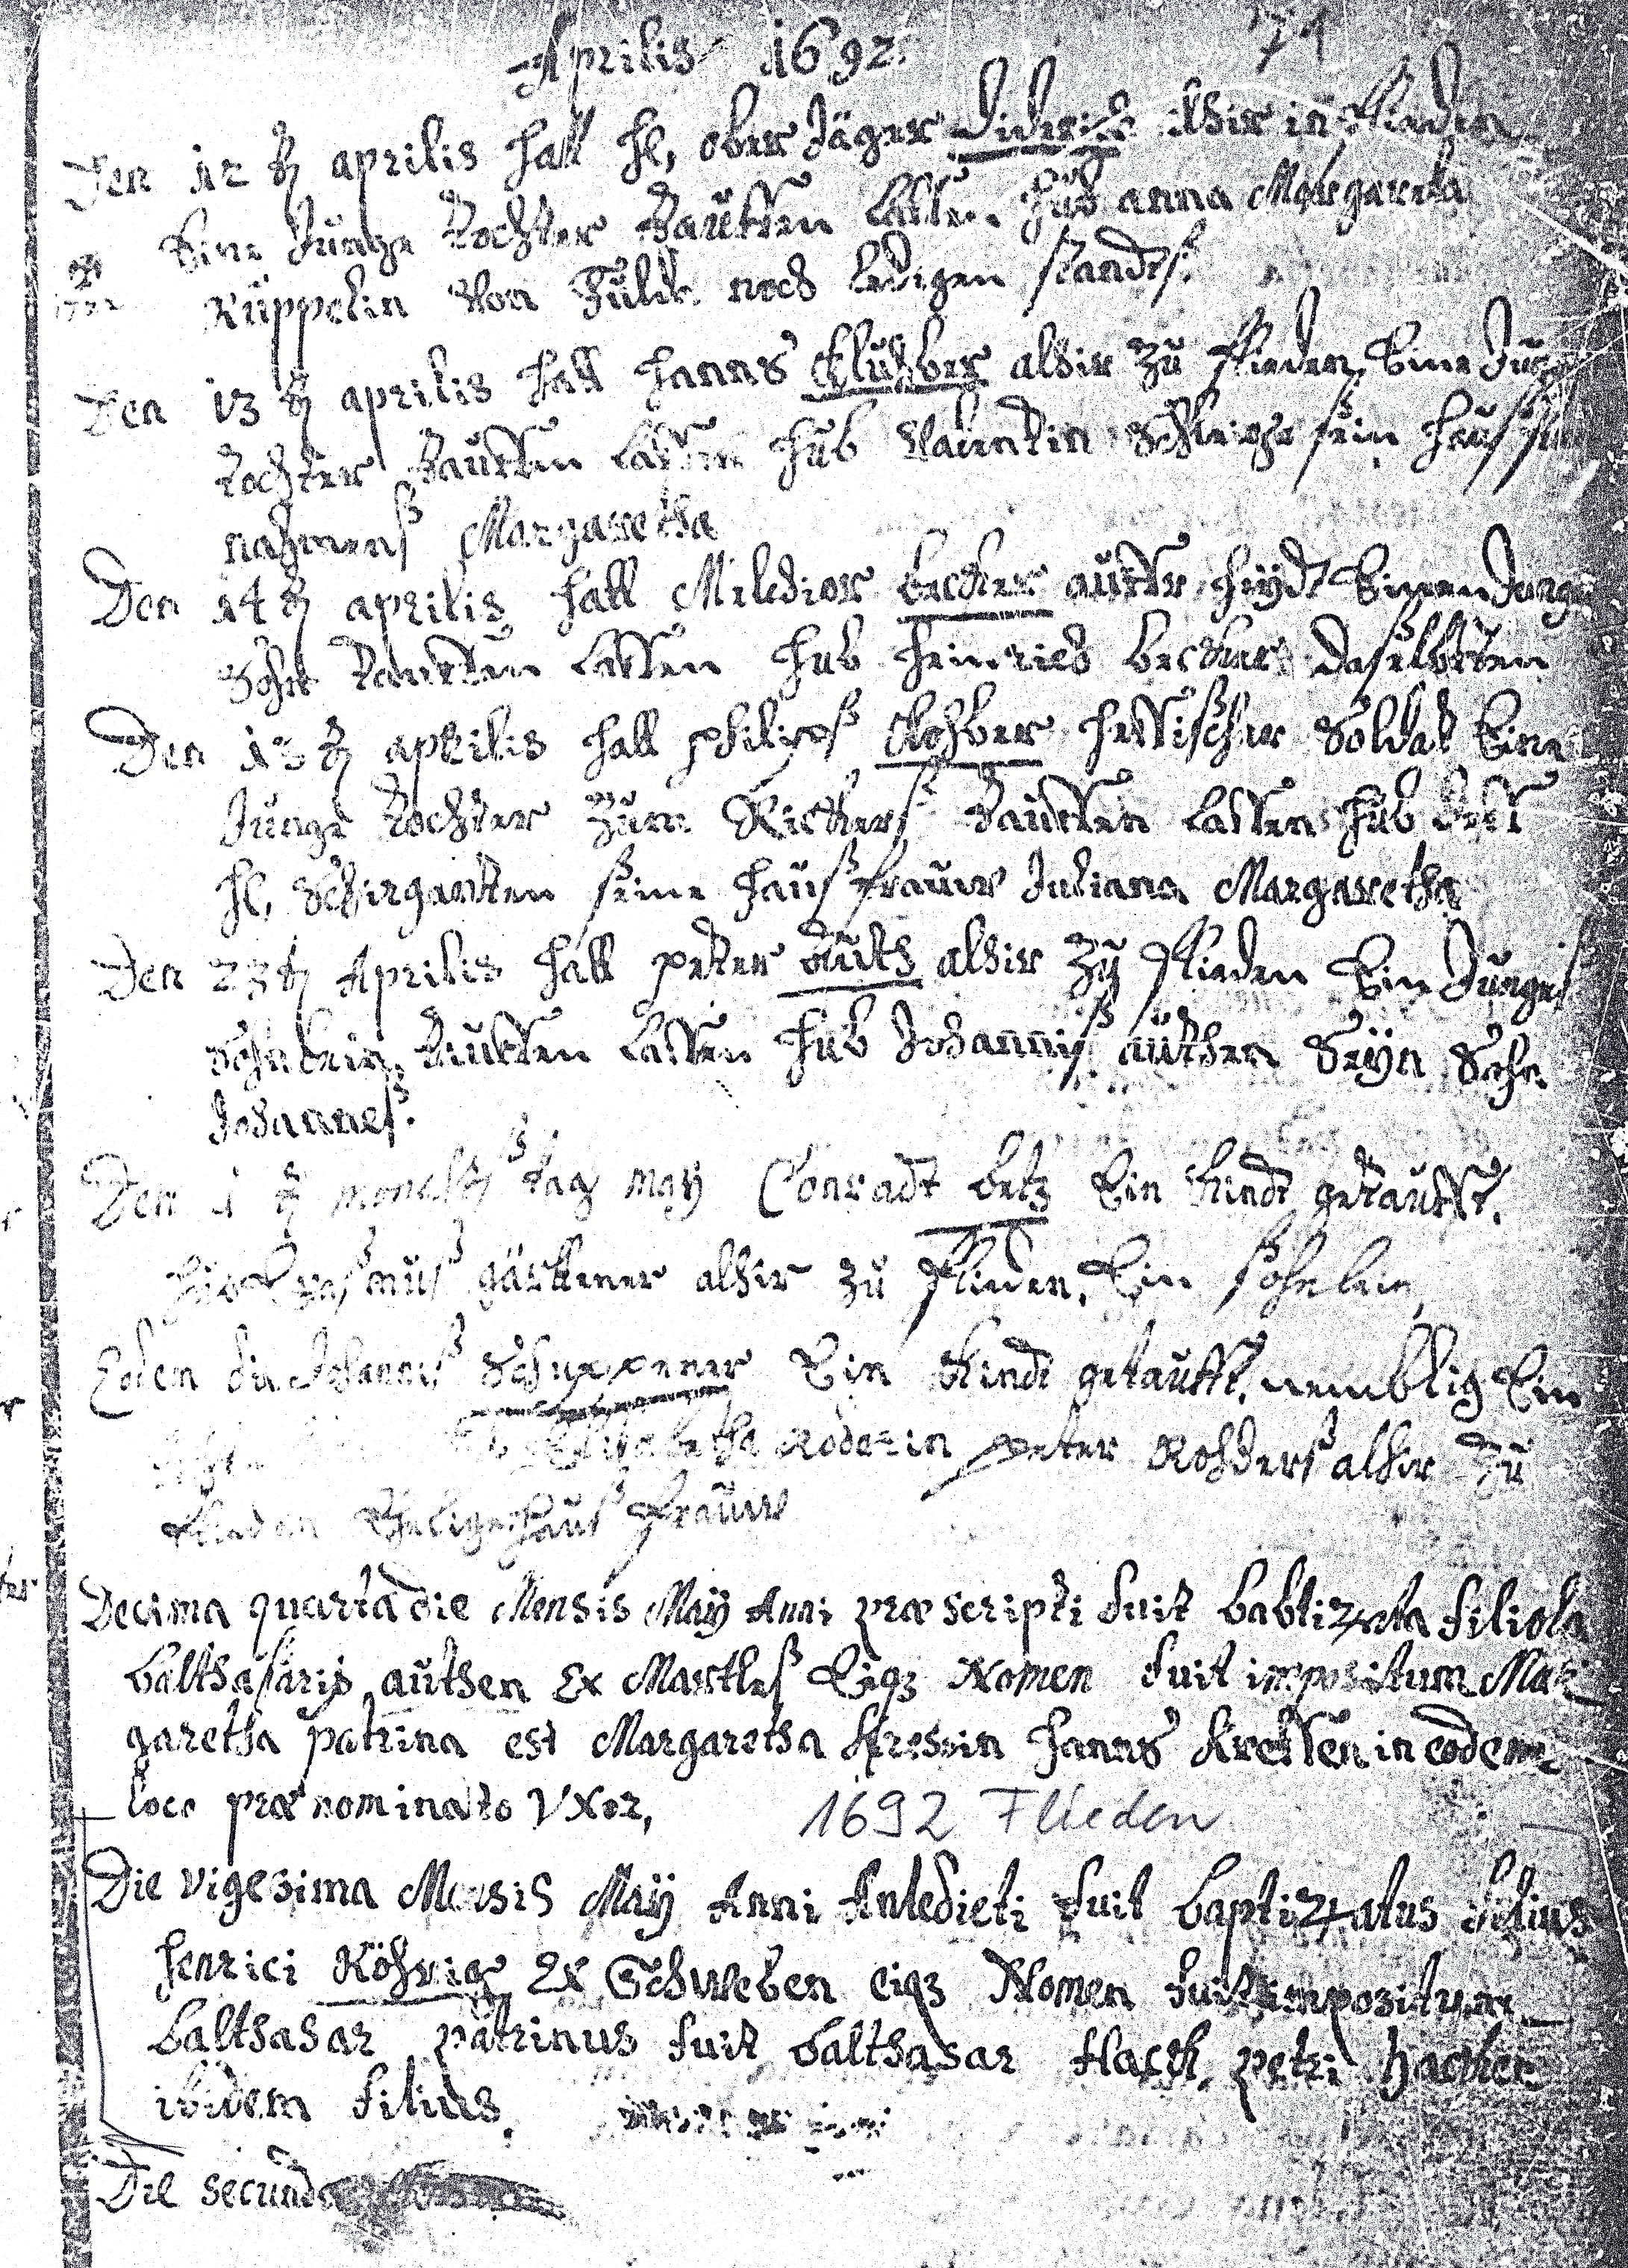 Aprilis 1692. 71
Den 12 t aprilis hatt H, ober Jäger Diderich alhir in flieden
Eine Junge Tochter Tauffen lassen hub anna Margareta
Rüppelin von Fuld noch ledigen standts.
Den 13 t aprilis hatt Hanns Kluhber alhir zu flieden Eine Jun
tochter Tauffen lassen hub Valentin sein Haus
nahmens Margaretha
Den 14 t aprilis hatt Melchior becker auffr Hüydt Einen Junge
Sohn Tauffen lassen hub Heinrich becker daselbsten
Den 13 t aprilis hatt philips Rohber Hessischer Soldat Eine
Junge Tochter zum Rickers Tauffen lassen hub
H, seine Hausfrauw Juliana Margaretha
Den 23 t Aprilis hatt peter auth alhir zu flieden Ein Junges
Sohnlein Tauffen lassen hub Johannis authen Seyn Sohn
Johannes.
Den 1 t monats tag may Conradt betz Ein Kindt getaufft.
hub Erasmus gärttner alhir zu flieden, Ein sohnlein,
Eodem die Johannis Schuppener Ein Kindt getaufft, nemblig Ein
Elisabetha Roderin peter Rohders alhir zu
flieden Ehelige Haus frauw
Decima quarta die Mensis Maÿ Anni præscripti fuit babtizata filiola
balthasaris authen Ex Marttles Eiqz Nomen fuit impositum Mar
garetha patrina est Margaretha Kressin Hanns Kressen in eodem
loco prænominato Vxor,
1692 Flieden
Die vigesima Mensis Maÿ Anni Antedicti fuit baptizatus filius
Henrici Röhrig Ex Schweben eiqz Nomen fuit impositum
balthasar patrinus fuit balthasar Hack petri hacken
ibidem filius.
Die secunda